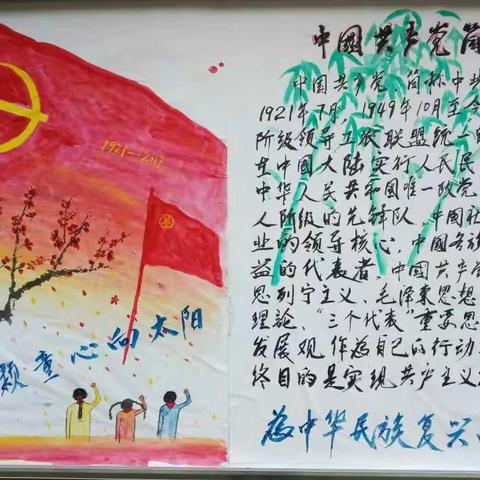 1921—2017
颗童心向太阳
中國共产党简
中国共产党，简称中共
1921年7月，1949年10月至今
阶级领导工农联盟统一
在中国大陆实行人民民
中华人民共和国唯一政党
人阶级的先锋队，中國社
业的领导核心，中國各族
益的代表者，中國共产
思列宁主义、毛泽东思想
理论、“三个代表”重要思
发展观作为自己的行动
终目的是实现共产主义
为中华民族复兴